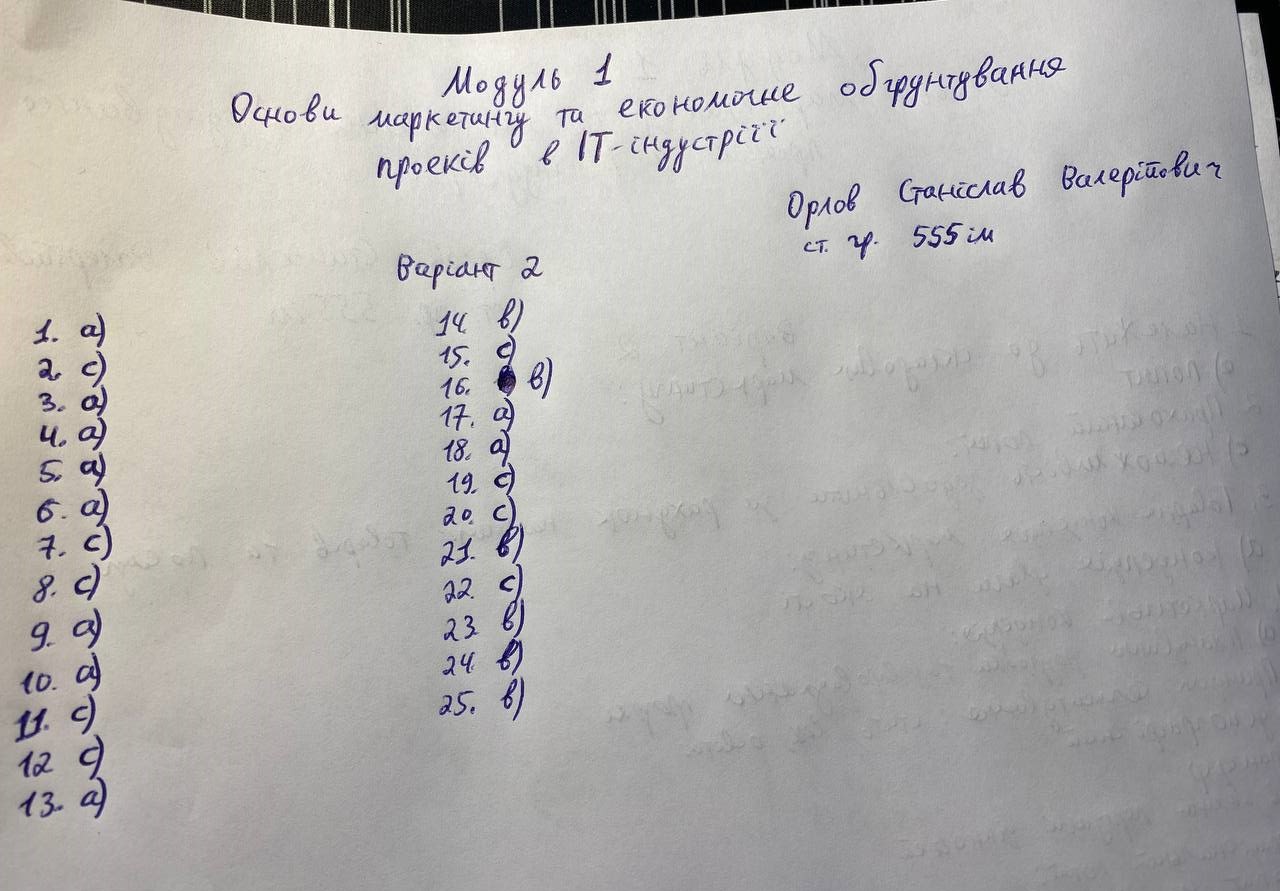 Модуль 1
Основи маркетингу та економічне обгрунтування
проєків в ІТ-індустріїї
Орлов Станіслав Валерійович
ст. гр. 555ім
Варіант 2
1. а)
2. с)
3. а)
4. а)
5. а)
6. а)
7. с)
8. с)
9. а)
10. а)
11. с)
12 с)
13. а)
14 в)
15. с)
16. в)
17. а)
18. а)
19. с)
20. с)
21. в)
22. с)
23. в)
24. в)
25. в)